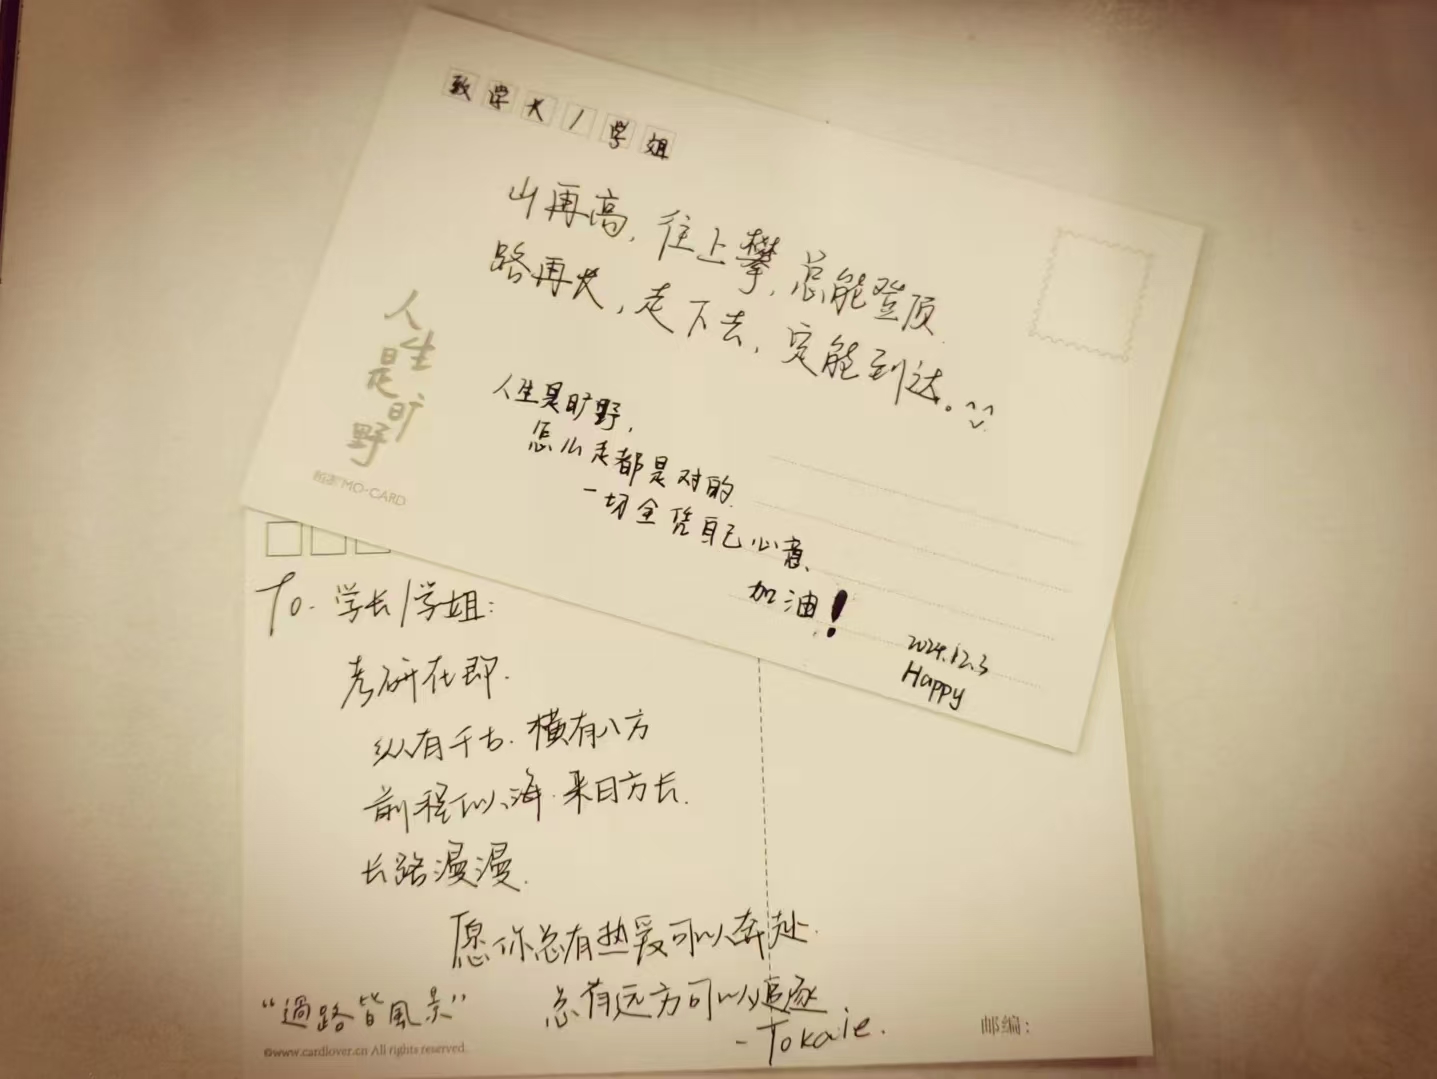 致学长/学姐
山再高,往上攀,总能登顶
路再长,走下去,定能到达。^_^
人生是旷野,
怎么走都是对的
一切全凭自己心意、
加油!
2024.12.3
Happy
人生是旷野
MO·CARD
To. 学长/学姐:
考研在即.
纵有千古.横有八方
前程似海.来日方长.
长路漫漫.
愿你总有热爱可以奔赴.
总有远方可以追逐
-Tokaie.
“過路皆風景”
©www.cardlover.cn All rights reserved.
邮编: